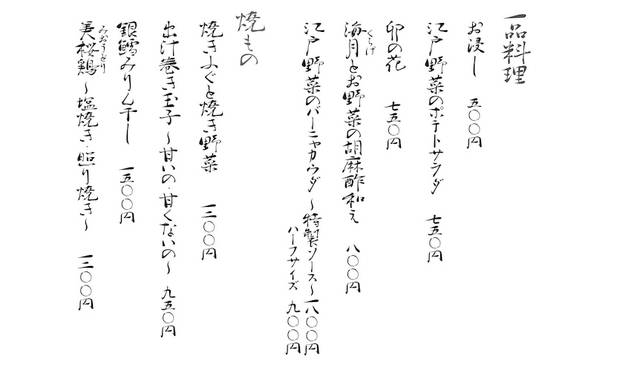 一品料理
お浸し 五〇〇円
江戸野菜のポテトサラダ 七五〇円
卯の花 七五〇円
海月とお野菜の胡麻酢和え 八〇〇円
くらげ
江戸野菜のバーニャカウダ ~特製ソース~ 一八〇〇円
ハーフサイズ 九〇〇円
焼もの
焼きふぐと焼き野菜 一三〇〇円
出汁巻き玉子~甘いの・甘くないの~ 九五〇円
銀鱈みりん干し 一五〇〇円
美桜鶏~塩焼き・照り焼き~ 一三〇〇円
みおうどり